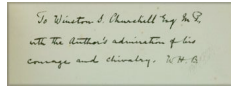 To Winston S. Churchill Esq. M.P.
with the Author's admiration of his
courage and chivalry. W.H.B